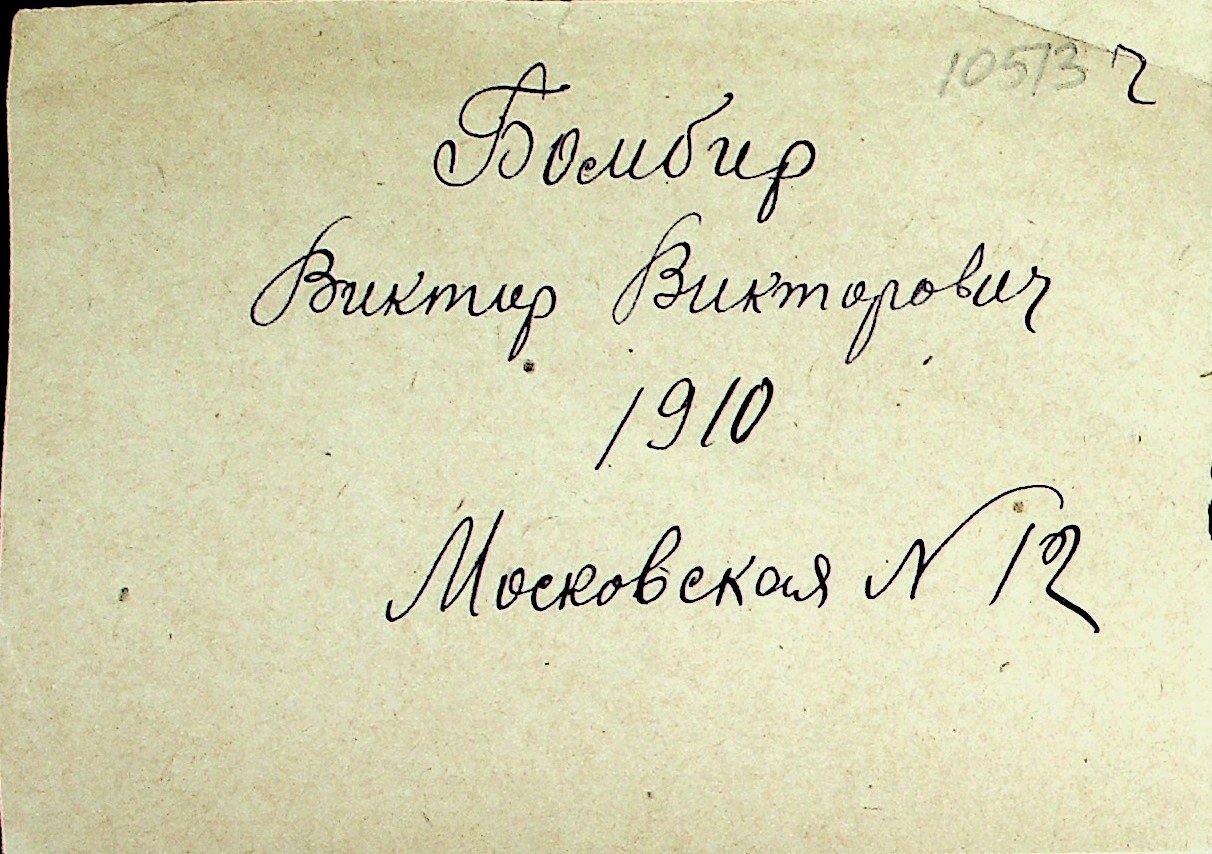 10573 ч
Бомбир
Виктор Викторович
1910
Московская N 12